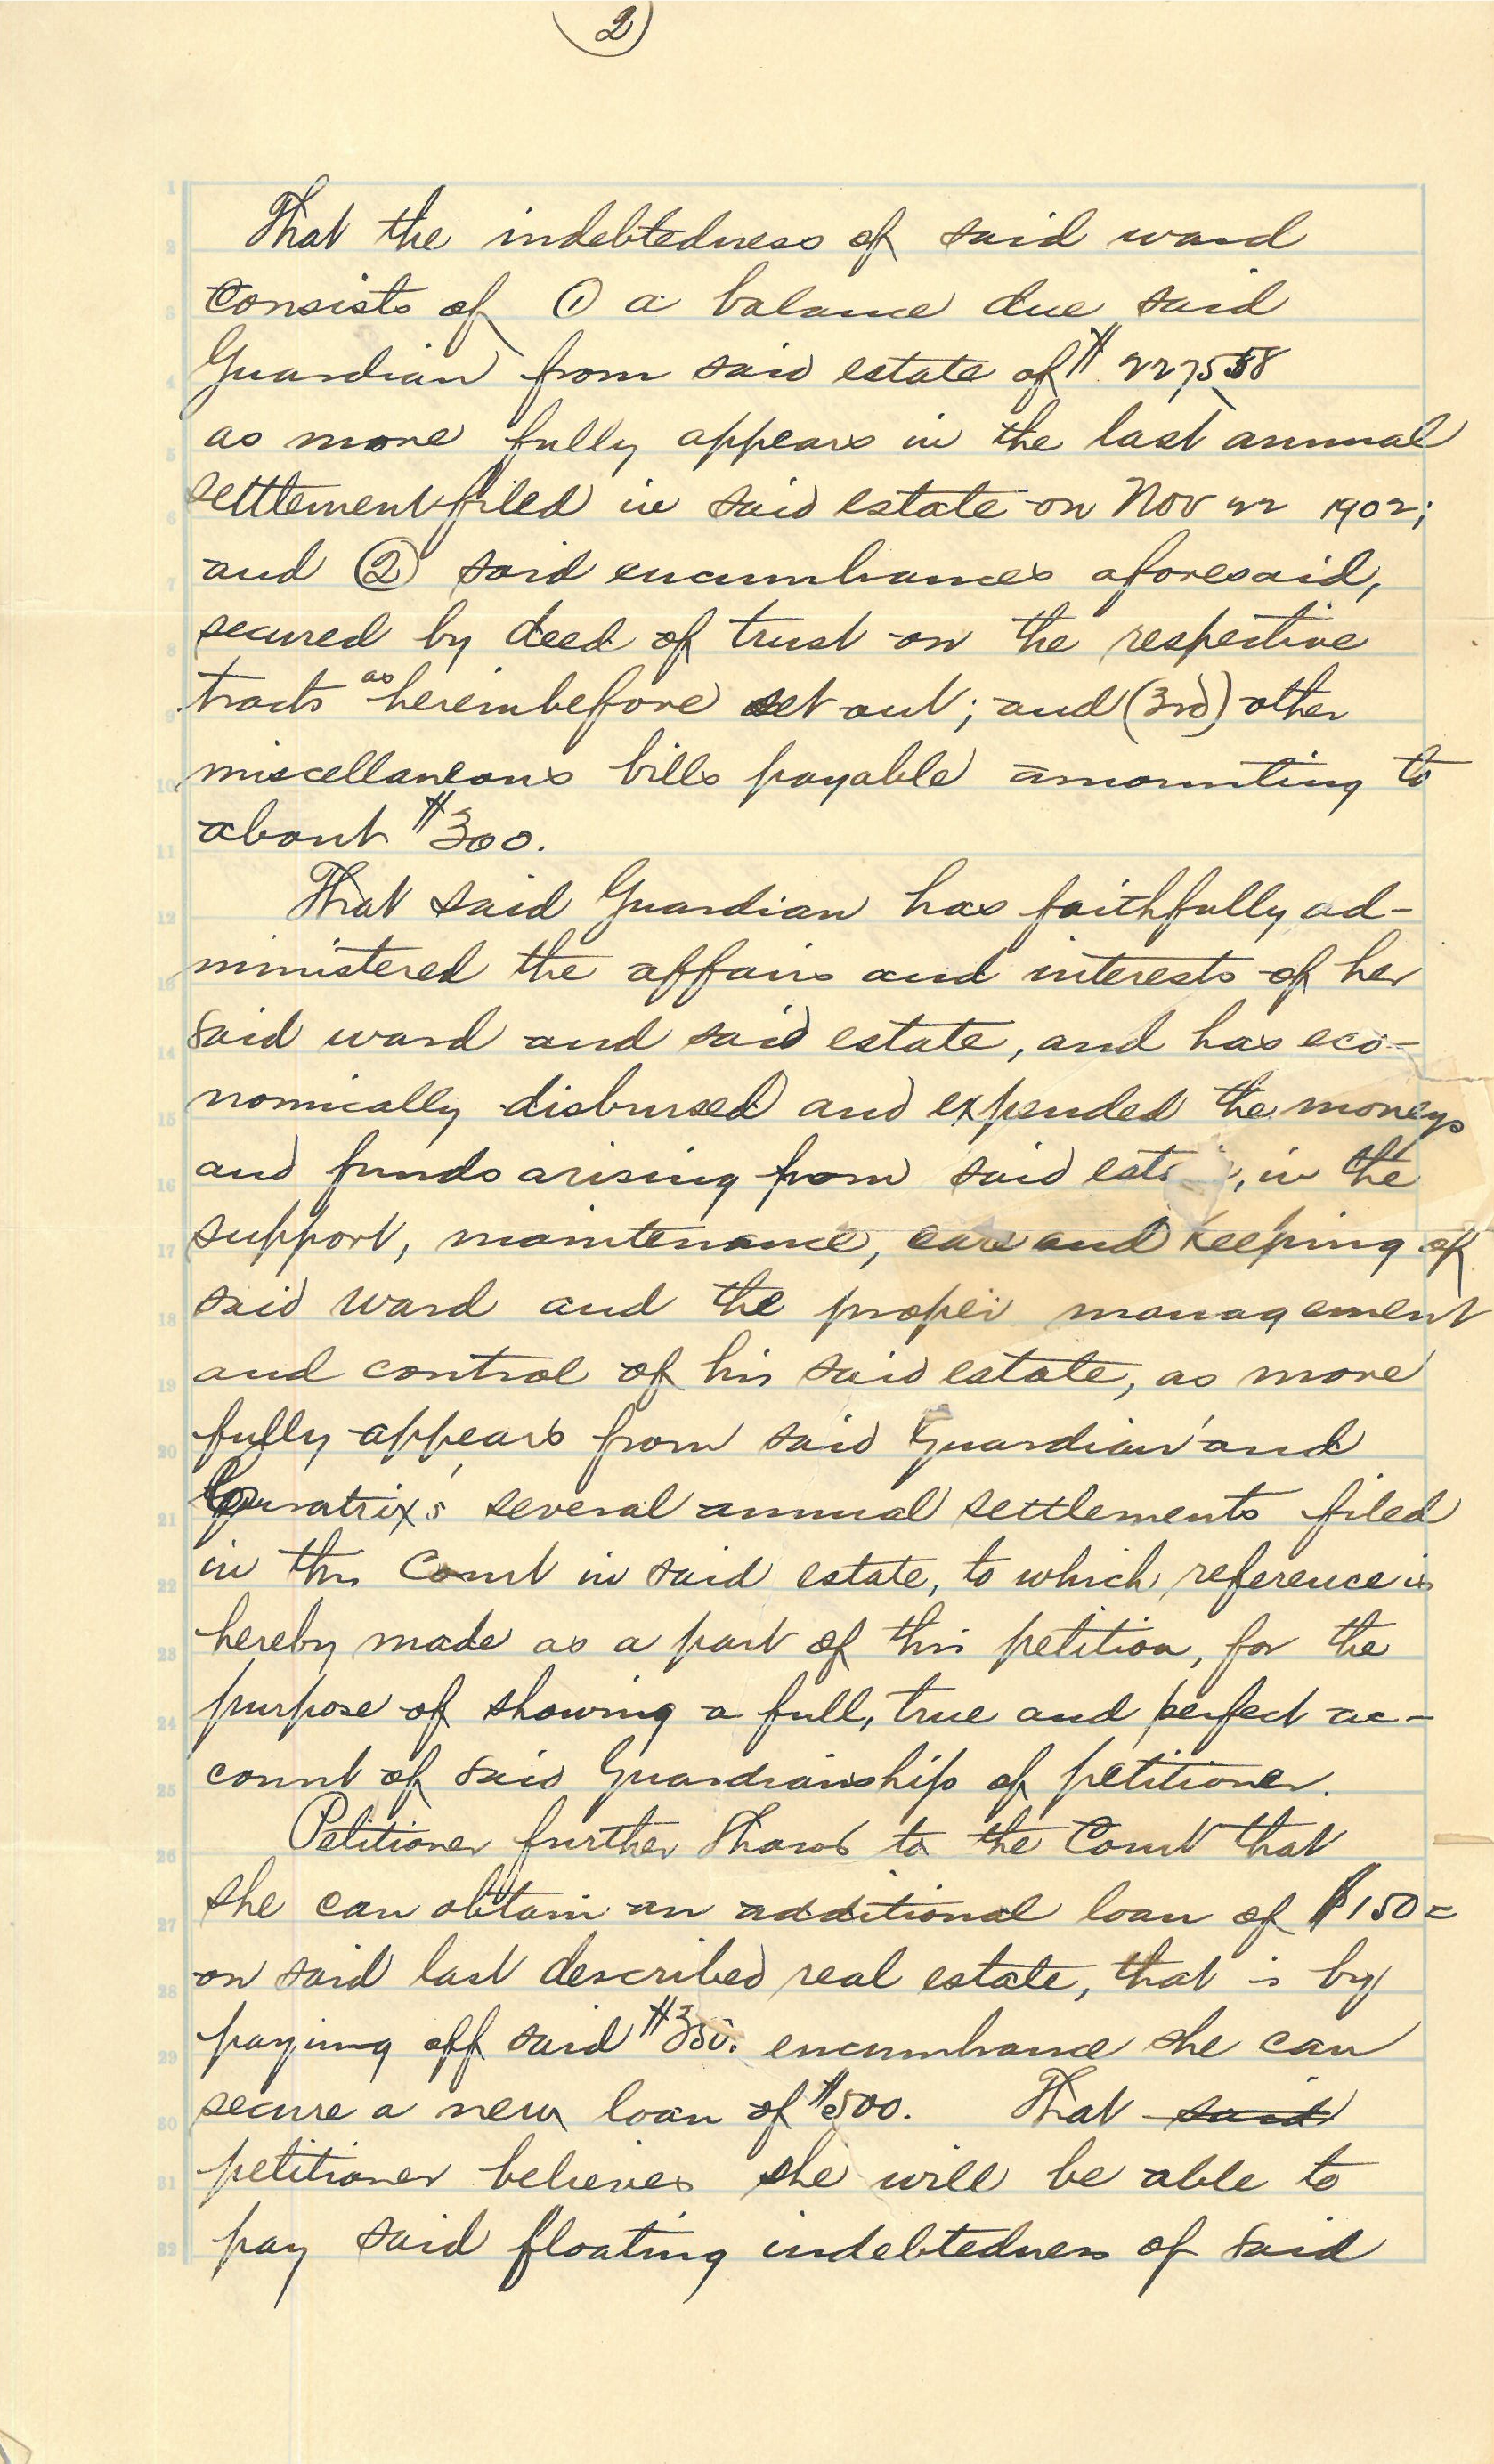 2
That the indebtedness of said ward
consists of ① a balance due said
Guardian from said estate of $ 2275 58
as more fully appears in the last annual
settlement filed in said estate on Nov 22 1902;
and ② said encumbrances aforesaid,
secured by deed of trust on the respective
tracts as hereinbefore set out; and (3rd) other
miscellaneous bills payable amounting to
about $300.
That said Guardian has faithfully ad-
ministered the affairs and interests of her
said ward and said estate, and has eco-
nomically disbursed and expended the moneys
and funds arising from said , in the
support, maintenance, care and keeping of
said ward and the proper management
and control of his said estate, as more
fully appears from said Guardian' and
Curatrix's several annual settlements filed
in this Court in said estate, to which reference is
hereby made as a part of this petition, for the
purpose of showing a full, true and perfect ac-
count of said Guardianship of petitioner.
Petitioner further shows to the Court that
she can obtain an additional loan of $150=
on said last described real estate, that is by
paying off said $350. encumbrance she can
secure a new loan of $500. That said
petitioner believes she will be able to
pay said floating indebtedness of said
1
2
3
4
5
6
7
8
9
10
11
12
13
14
15
16
17
18
19
20
21
22
23
24
25
26
27
28
29
30
31
32